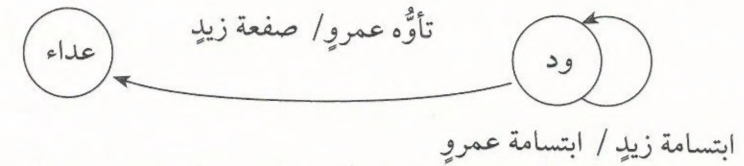 تأوُّه عمروٍ/ صفعة زيدٍ
ود
عداء
ابتسامة زيدٍ / ابتسامة عمروٍ